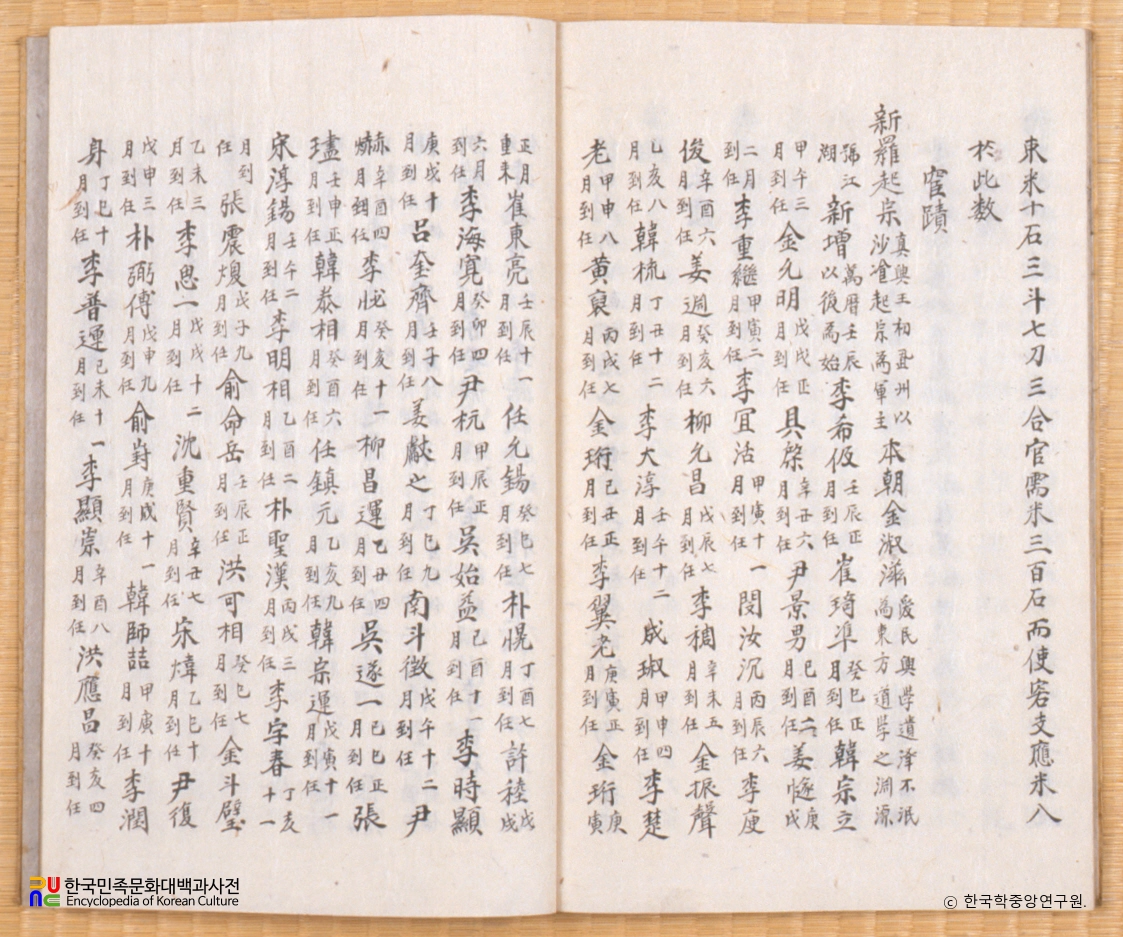 束米十石三斗七刀三合官需米三百石而使客支應米八
於此數
宦蹟
新羅起宗沙飡起宗爲軍主眞興王初丑州以本朝金淑滋愛民興學遺澤不泯爲東方道學之淵源
號江湖新增萬曆壬辰以後爲始李希伋壬辰正月到任崔琦準癸巳正月到任韓宗立
甲午三月到任金允明戊戌正月到任具棨辛丑六月到任尹景男己酉二月到任姜燧庚戌
二月到任李重繼甲寅三月到任李冝活甲寅十一月到任閔汝沉丙辰六月到任李㢞
俊辛酉六月到任姜週癸亥六月到任柳允昌戊辰七月到任李稠辛未五月到任金振聲
乙亥八月到任韓梳丁丑十二月到任李大淳壬午十二月到任成珬甲申四月到任李楚
老甲申八月到任黃裒丙戌七月到任金珩己丑正月到任李翼老庚寅正月到任金珩庚寅
正月重來崔東亮壬辰十一月到任任允錫癸巳七月到任朴愰丁酉七月到任許稑戊戌
六月到任李海寬癸卯四月到任尹杬甲辰正月到任吳始益己酉十一月到任李時顯
庚戌十月到任呂奎齊壬子八月到任姜獻之丁巳九月到任南斗徵戊午十二月到任尹
爀辛酉四月到任李㤖癸亥十一月到任柳昌運乙丑四月到任吳遂一己巳正月到任張
㻸壬申正月到任韓泰相癸酉六月到任任鎭元乙亥九月到任韓宗運戊寅十一月到任
宋淳錫壬午二月到任李明相乙酉二月到任朴聖漢丙戌三月到任李宇春丁亥十一
月到任張震煥戊子九月到任俞命岳壬辰正月到任洪可相癸巳七月到任金斗璧
乙未三月到任李思一戊戌十二月到任沈重賢辛丑七月到任宋煒乙巳十月到任尹復
戊申三月到任朴弼傅戊申九月到任俞對庚戌十一月到任韓師喆甲寅十月到任李潤
身丁巳十月到任李普運己未十一月到任李顯崇辛酉八月到任洪應昌癸亥四月到任
한국민족문화대백과사전
Encyclopedia of Korean Culture
© 한국학중앙연구원.